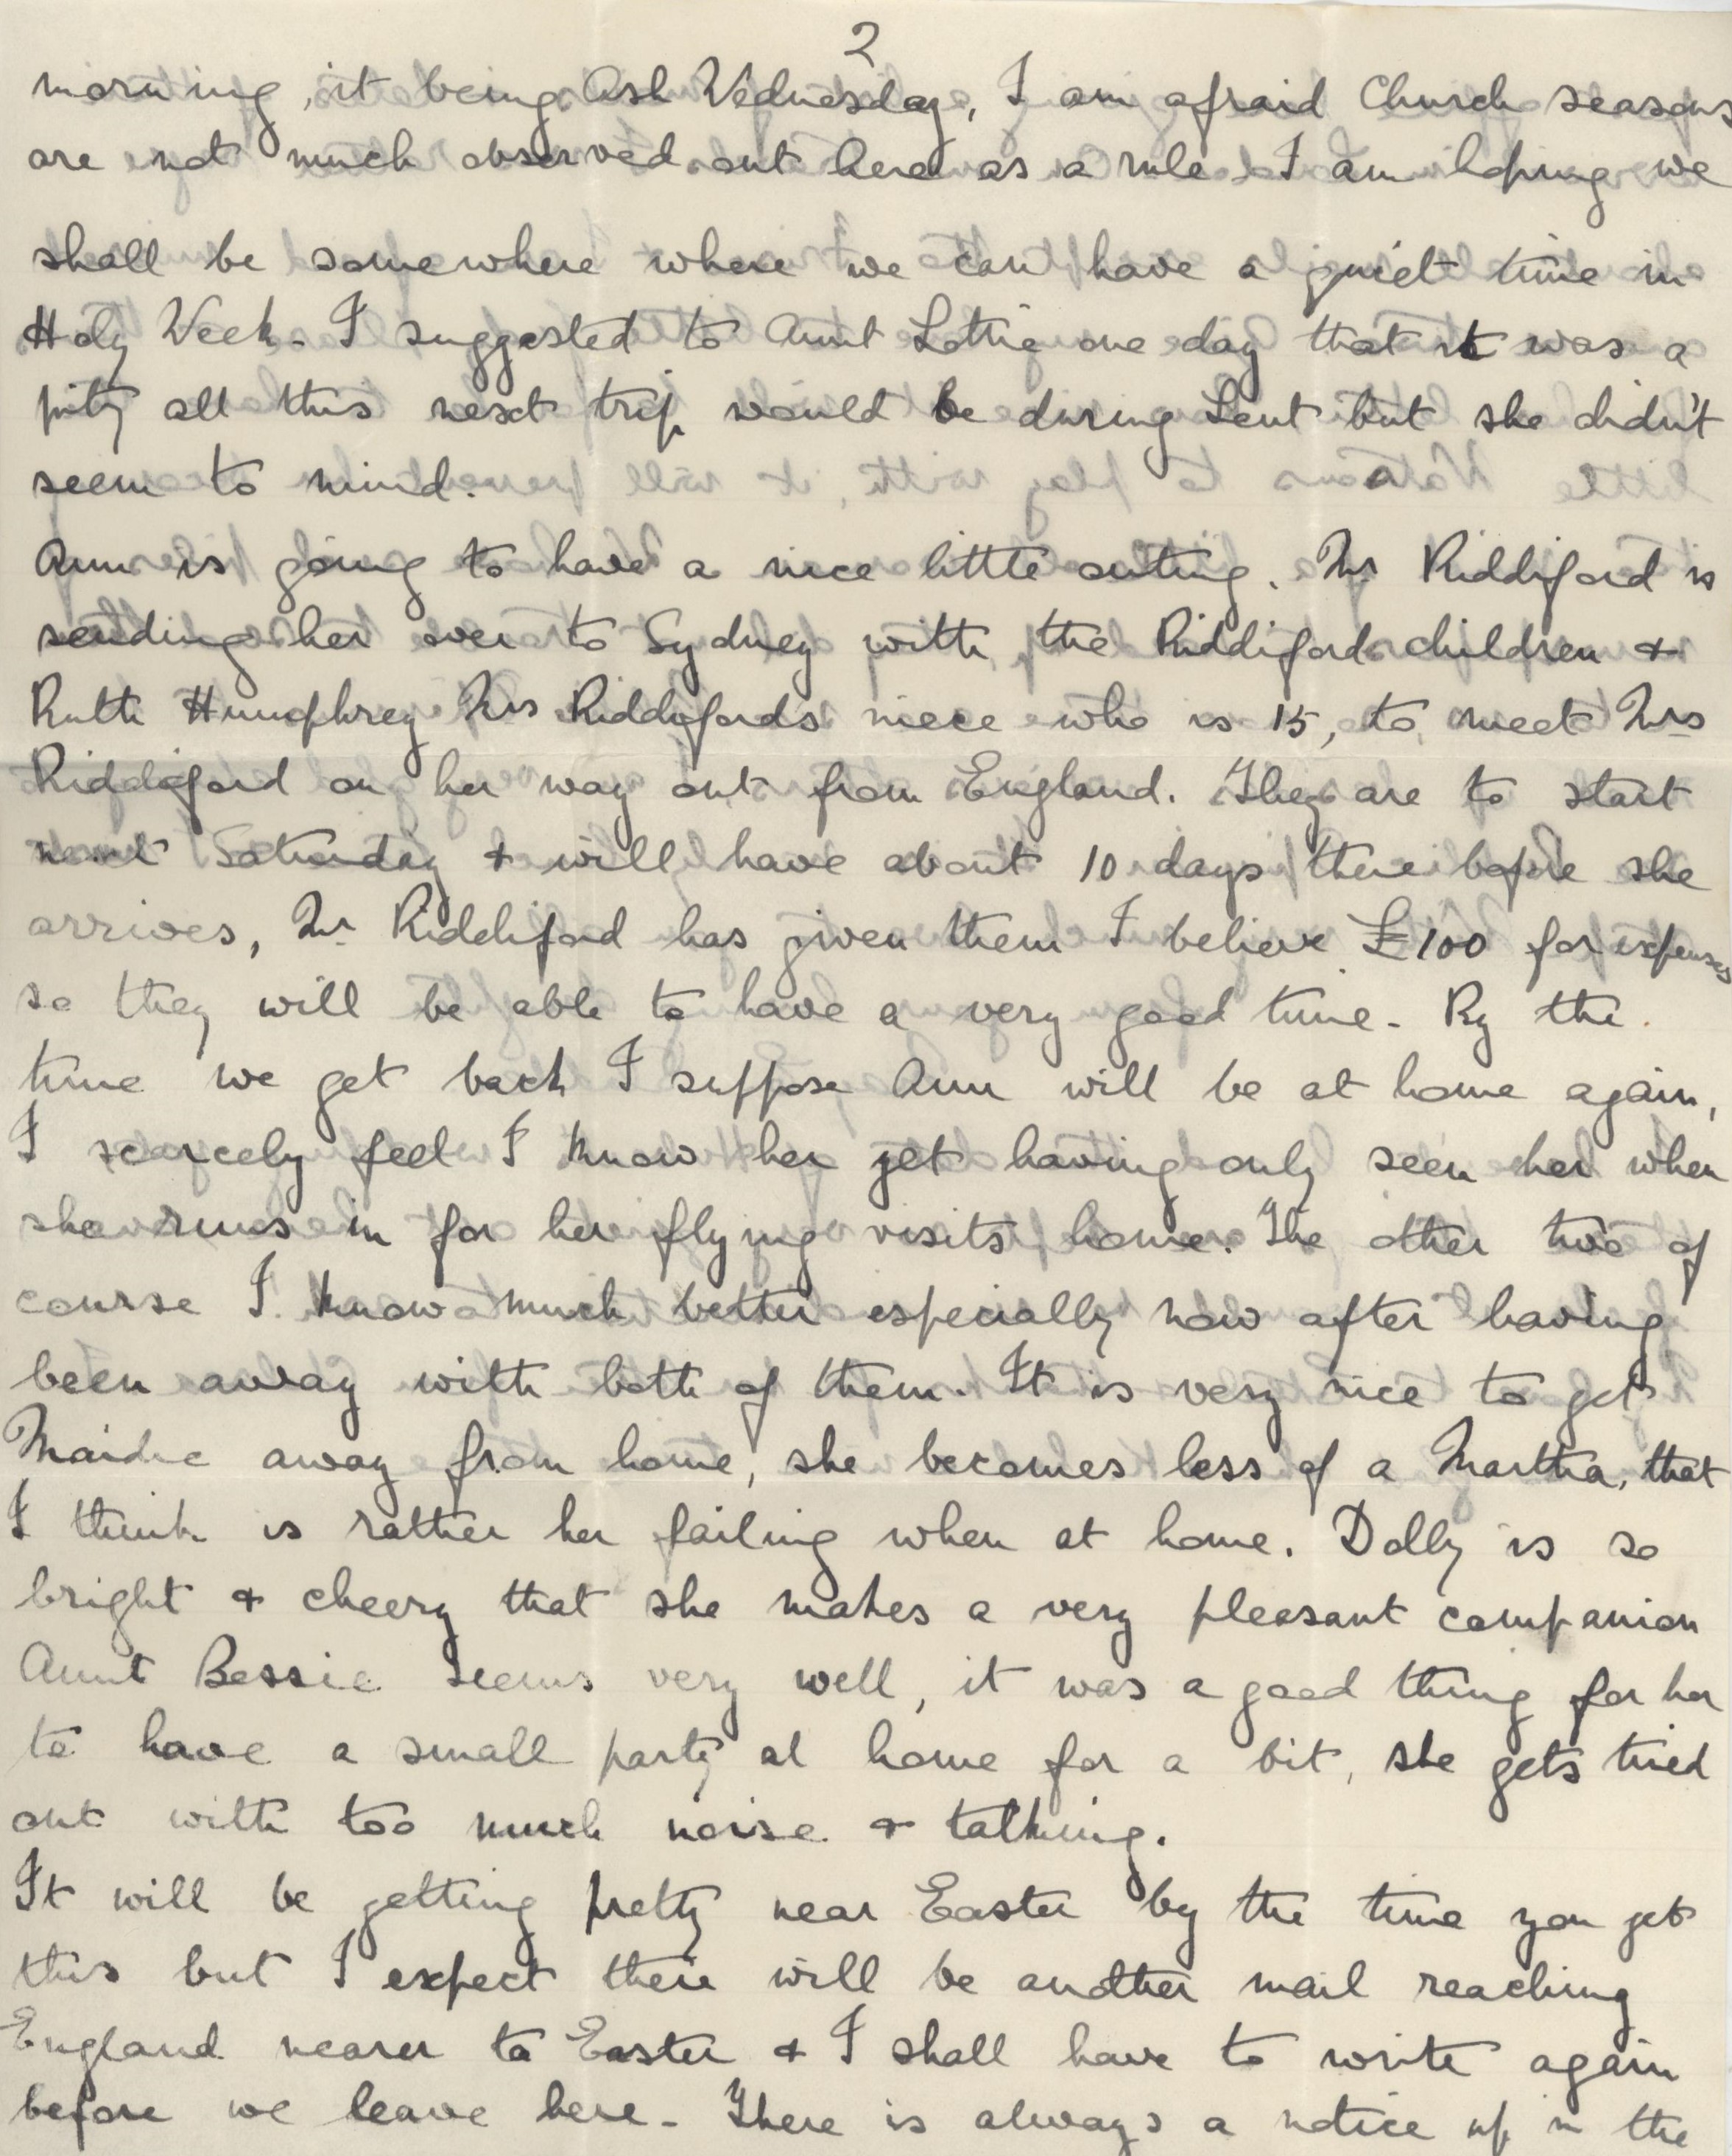 2
morning, it being Ash Wednesday, I am afraid Church seasons
are not much observed out here as a rule. I am hoping we
shall be somewhere where we can have a quiet time in
Holy Week. I suggested to Aunt Lottie one day that it was a
pity all this next trip would be during Lent but she didn't
seem to mind.
Ann is going to have a nice little outing. Mr Riddiford is
sending her over to Sydney with the Riddiford children &
Ruth Humphrey Mrs Riddifords niece who is 15, to meet Mrs
Riddiford on her way out from England. They are to start
next Saturday & will have about 10 days there before she
arrives, Mr Riddiford has given them I believe £100 for expenses
so they will be able to have a very good time. By the
time we get back I suppose Ann will be at home again,
I scarcely feel I know her yet having only seen her when
she runs in for her flying visits home. The other two of
course I know much better especially now after having
been away with both of them. It is very nice to get
Maidie away from home, she becomes less of a Martha, that
I think is rather her failing when at home. Dolly is so
bright & cheery that she makes a very pleasant companion
Aunt Bessie seems very well, it was a good thing for her
to have a small party at home for a bit, she gets tired
out with too much noise & talking.
It will be getting pretty near Easter by the time you get
this but I expect there will be another mail reaching
England nearer to Easter & I shall have to write again
before we leave here. There is always a notice up in the